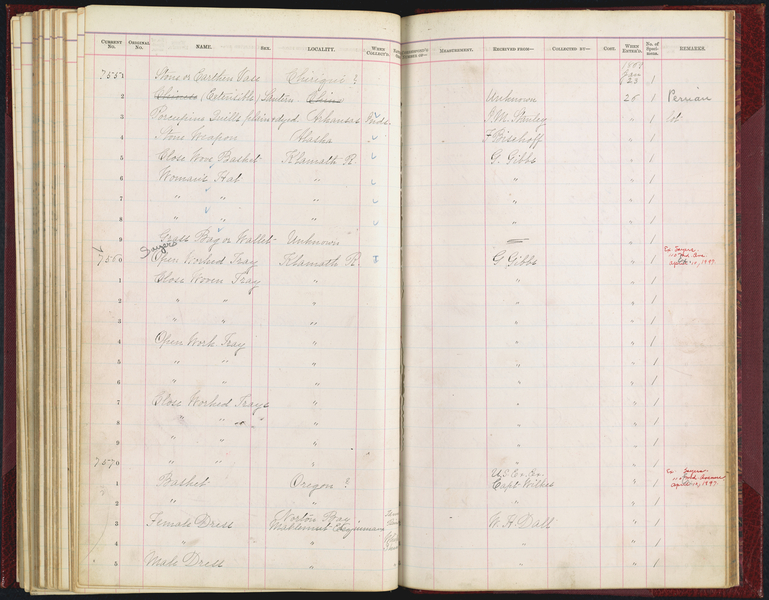 CURRENT No. ORIGINAL No. NAME. SEX. LOCALITY. WHEN COLLECT'D. MEASUREMENT. RECEIVED FROM— COLLECTED BY— COST. WHEN ENTER'D. No. of Speci- mens. REMARKS.
Jan
755 Stone or Earthen Vase Chiriqui ? 23 1
2 Chinese (Extensible) Lantern China Unknown 26 1 Persian
3 Porcupine Quills plain & dyed Arkansas J. M. Stanley " 1 lot
4 Stone Weapon Alaska F Bischoff " 1
5 Close Wove Basket Klamath R G. Gibbs " 1
6 Woman's Hat " " " 1
7 " " " " " 1
8 " " " " " 1
9 Grass Bag or Wallet Unknown " 1
7560 Open Worked Tray Klamath R. G Gibbs " 1
1 Close Woven Tray " " " 1
2 " " " " " 1
3 " " " " " 1
4 Open Work Tray " " " 1
5 " " " " " 1
6 " " " " " 1
7 Close Worked Trays " " " 1
8 " " " " " 1
9 " " " " " 1
7570 " " " " " 1
1 Basket Oregon ? U.S. Ex. Ex. Capt Wilkes " 1
2 " " " " 1
3 Female Dress Norton Bay W. H. Dall " 1
4 " " " " 1
5 Male Dress " " " 1